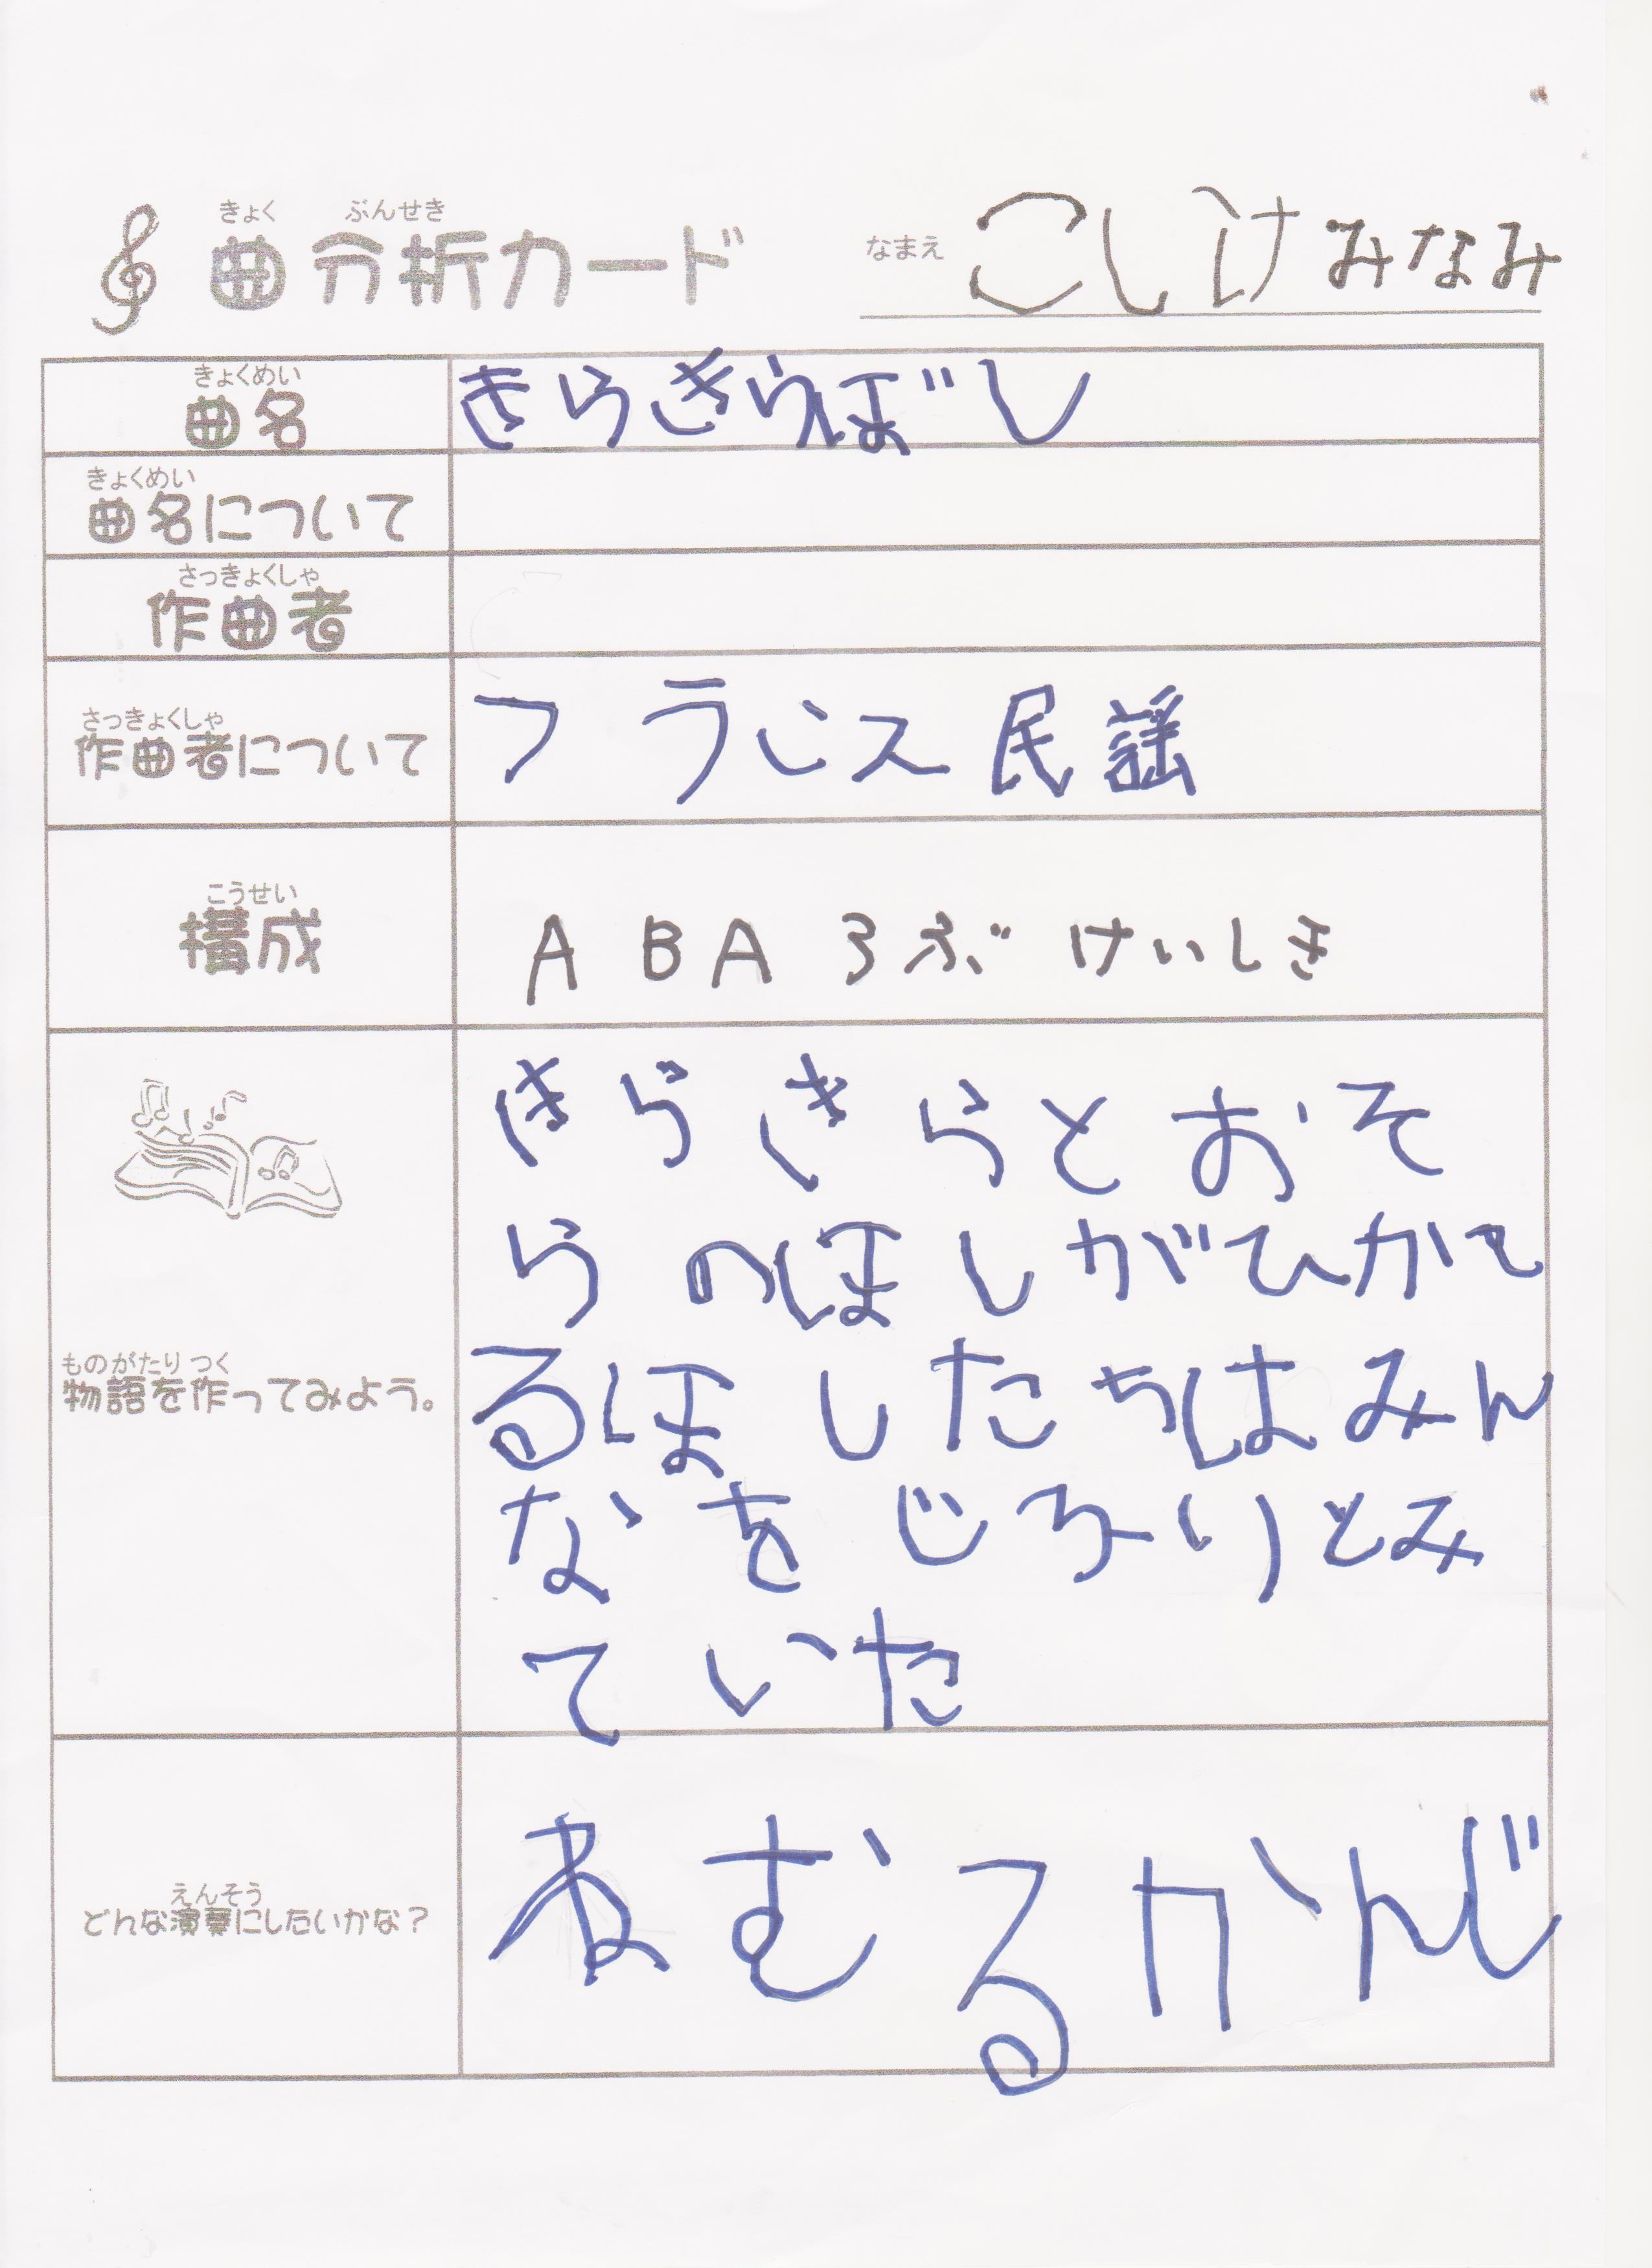 きょく ぶんせき
曲分析カード
なまえ こしいけ みなみ
きょくめい
曲名
きらきらぼし
きょくめい
曲名について
さっきょくしゃ
作曲者
さっきょくしゃ
作曲者について
フランス民謡
こうせい
構成
ABA 3ぶ けいしき
ものがたり つく
物語を作ってみよう。
きらきらとおそ
らのほしがひかて
るほしたちはみん
なをじろりとみ
ていた
えんそう
どんな演奏にしたいかな?
ねむるかんじ